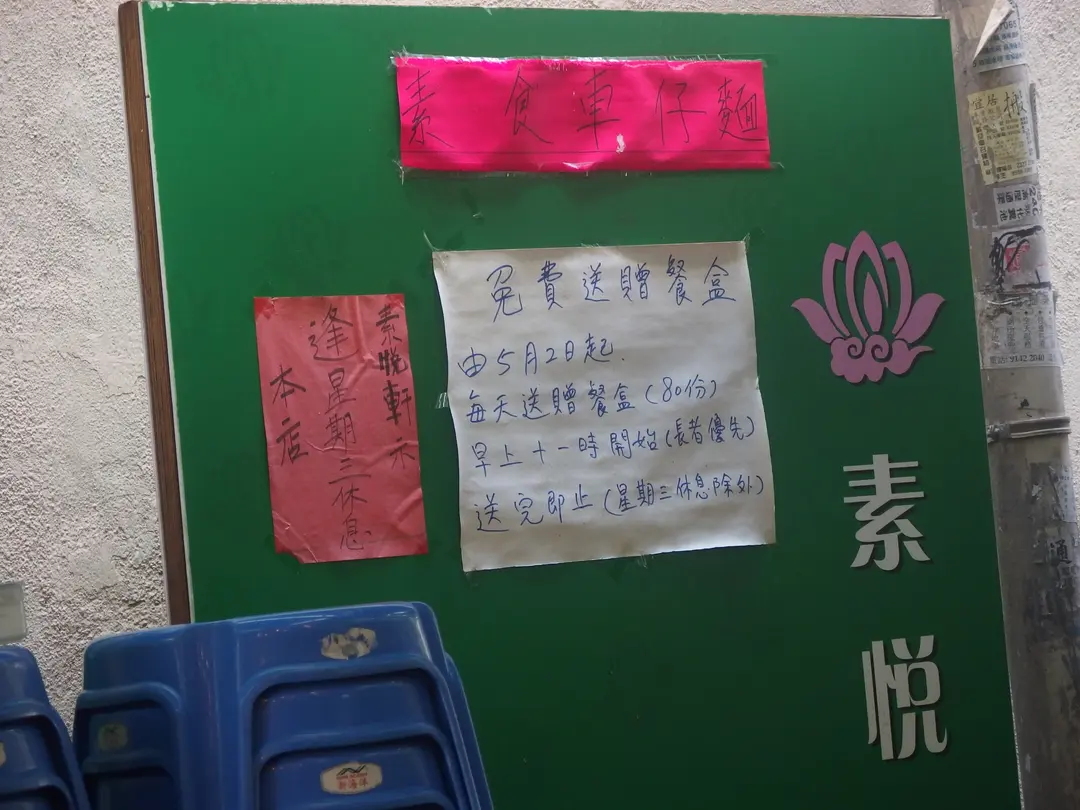 素食車仔麵
免費送贈餐盒
由5月2日起.
每天送贈餐盒(80份)
早上十一時開始(長者優先)
送完即止(星期三休息除外)
素悅軒示
逢星期三休息
本店
素悅